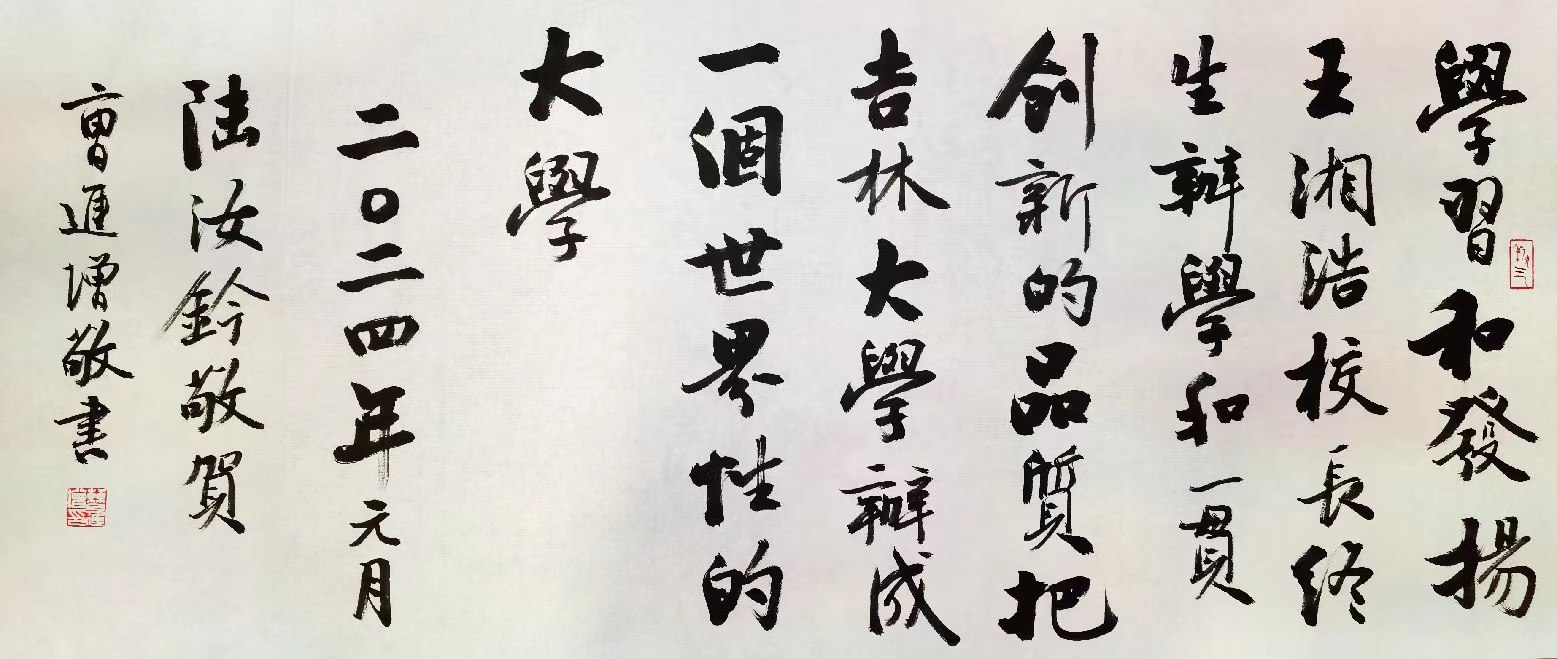 學習和發揚
王湘浩校長終
生辦學和一貫
創新的品質把
吉林大學辦成
一個世界性的
大學
二〇二四年元月
陆汝鈐敬賀
曹進增敬書